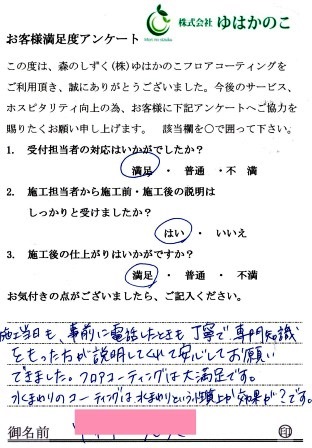 株式会社 ゆはかのこ
Mori no shizuku
お客様満足度アンケート
この度は、森のしずく(株)ゆはかのこフロアコーティングを
ご利用頂き、誠にありがとうございました。今後のサービス、
ホスピタリティ向上の為、お客様に下記アンケートへご協力を
賜りたくお願い申し上げます。 該当欄を○で囲って下さい。
1. 受付担当者の対応はいかがでしたか?
満足 ・ 普通 ・ 不 満
2. 施工担当者から施工前・施工後の説明は
しっかりと受けましたか?
はい ・ いいえ
3. 施工後の仕上がりはいかがですか?
満足 ・ 普通 ・ 不満
お気付きの点がございましたら、ご記入ください。
施工当日も、事前に電話したときも丁寧で専門知識
をもった方が説明してくれて安心してお願い
できました。フロアコーティングは大満足です。
水まわりのコーティングは水まわりという性質上か効果が?です。
御名前 印